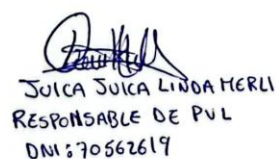 JUICA JUICA LINDA MERLI
RESPONSABLE DE PVL
DNI: 70562619